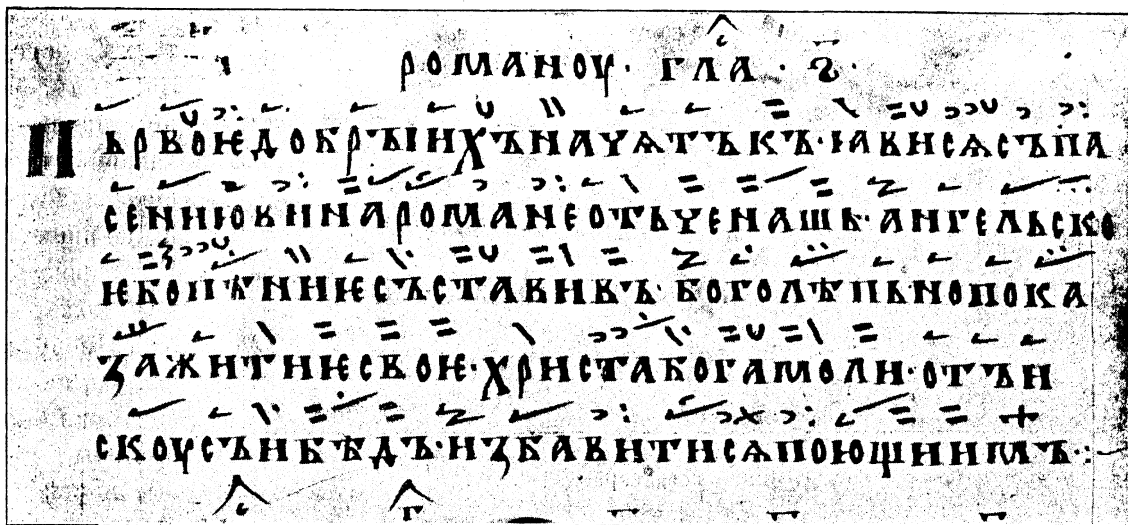 романоу · гла · ѕ ·
Пьрвоѥдобрꙑихъначѧтъкъ·ꙗвисѧсъпа
сениювинароманеотьченашь·ангельско
ѥбопѣниѥсъставивъ·боголѣпьнопока
зажитиѥсвоѥ·христабогамоли·отъи
скоусъибѣдъ·избавитисѧпоющиимъ·: